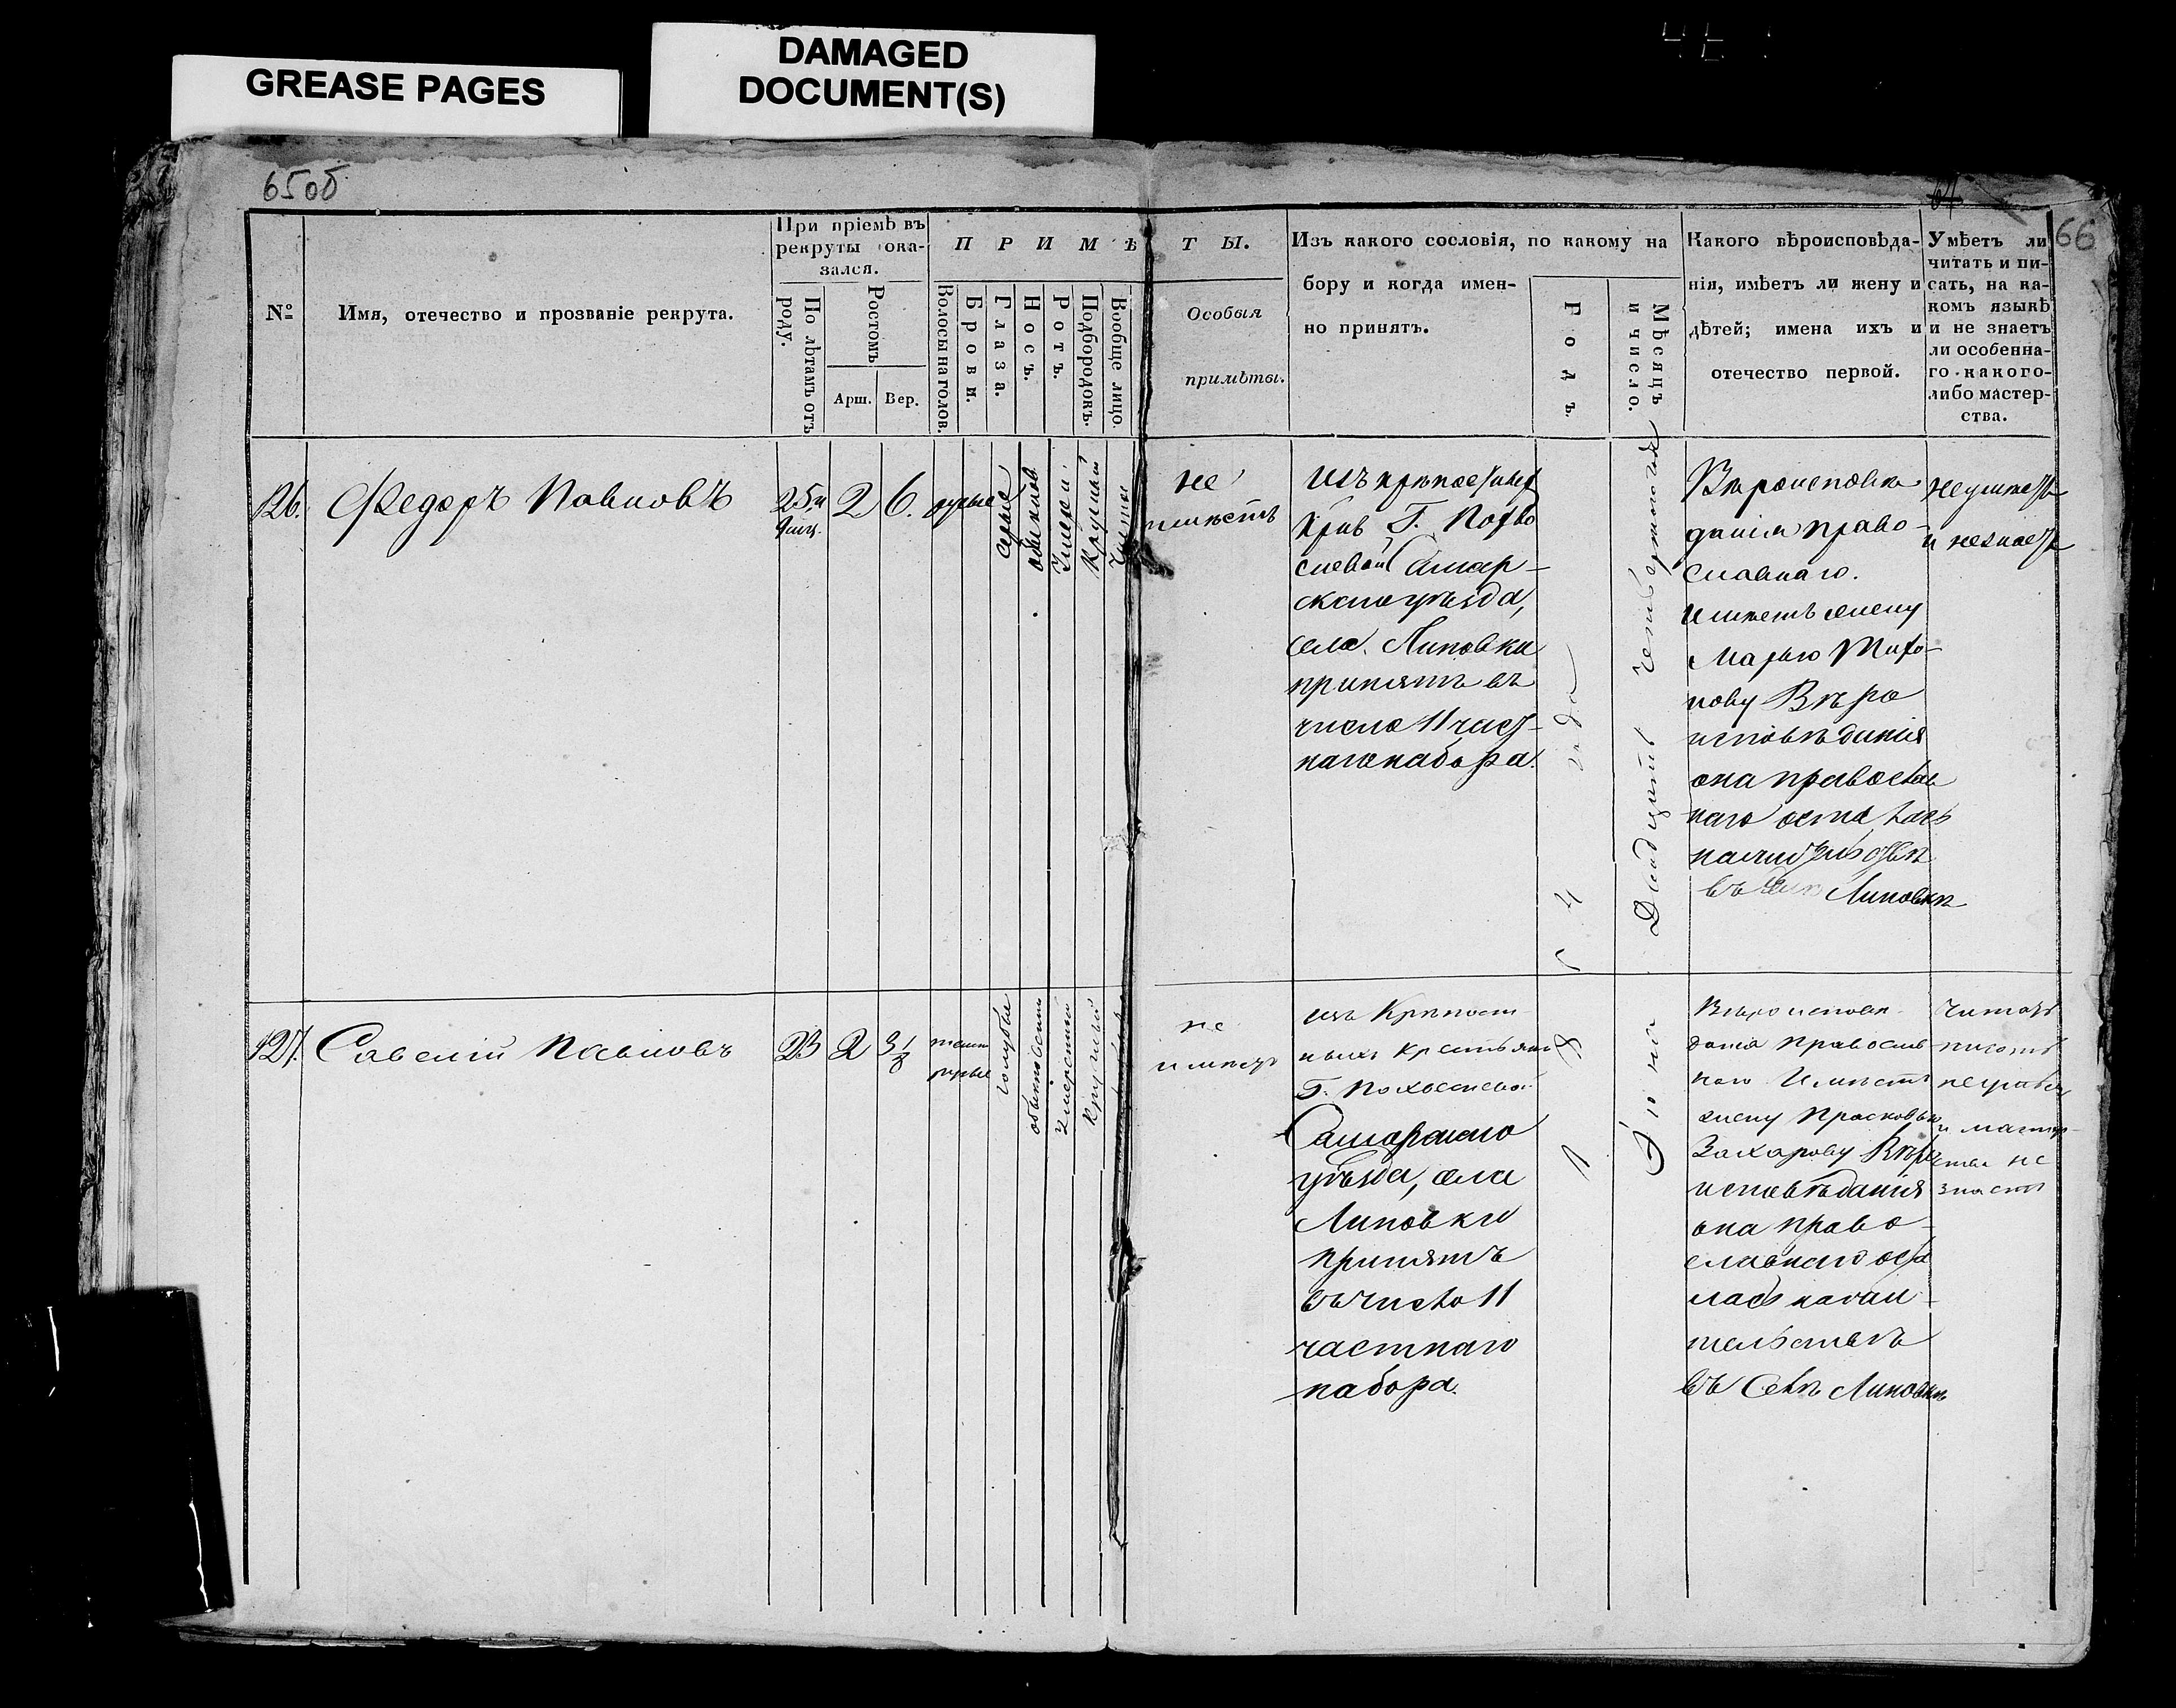 GREASE PAGES
DAMAGED
DOCUMENT(S)
65об
64
66
№
Имя, отечество и прозваніе рекрута.
При пріемѣ въ
рекруты ока-
зался.
По лѣтамъ отъ
роду.
Ростомъ
Арш.
Вер.
ПРИМѢТЫ.
Волосы на голов.
Брови.
Глаза.
Носъ.
Ротъ.
Подбородокъ.
Вообще лицо.
Особыя
примѣты.
Изъ какого сословія, по какому на
бору и когда имен-
но принятъ.
Годъ.
Мѣсяцъ
и число.
Какого вѣроисповѣда-
нія, имѣетъ ли жену и
дѣтей; имена ихъ и
отечество первой.
Умѣетъ ли
читать и пи-
сать, на ка-
комъ языкѣ
и не знаетъ
ли особенна-
го какого-
либо мастер-
ства.
126.
Федоръ Павловъ
25 и
2
6.
русые
серые
Умерен.
Круглый
Чистое
не
имѣетъ
Изъ
Крес Г. Похво
сневой Самар-
скаго уѣзда,
села Липовки
принятъ въ
число 11 част-
наго набора.
Двадцать четвертого
Вѣроисповѣ
данія право-
славнаго.
Имѣетъ жену
Марью
нову Вѣро
исповѣданія
она православ
наго осталась
въ селѣ Липовкѣ
не умѣетъ
и не знаетъ
127.
Савелій Павловъ
23
2
3 1/8
темн
русые
голубые
обыкновенны
умеренный
круглый
не
имѣетъ
изъ Крѣпост
ныхъ крестьянъ
Г. Похвосневой
Самарскаго
уѣзда, села
Липовки
принятъ
въ число 11
частнаго
набора.
1 8 5 4 года
Іюня
Вѣроисповѣ
данія Православ
наго Имѣетъ
жену Прасковью
Захарову Вѣро
исповѣданія
она право-
славнаго оста
лась на жи-
тельствѣ
въ Селѣ Липовкѣ
Читать
писать
и мастер-
ства не
знаетъ